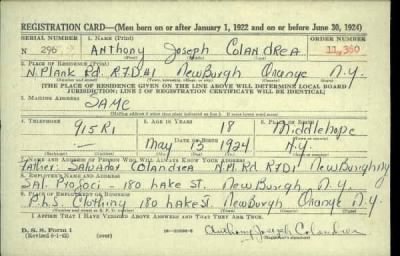 REGISTRATION CARD—(Men born on or after January 1, 1922 and on or before June 30, 1924)
SERIAL NUMBER 1. NAME (Print) ORDER NUMBER
N 296 Anthony Joseph Colandrea 11,360
(First) (Middle) (Last)
2. PLACE OF RESIDENCE (Print)
N. Plank Rd. RFD#1 Newburgh Orange N.Y.
[THE PLACE OF RESIDENCE GIVEN ON THE LINE ABOVE WILL DETERMINE LOCAL BOARD
JURISDICTION; LINE 2 OF REGISTRATION CERTIFICATE WILL BE IDENTICAL]
3. MAILING ADDRESS
SAME
4. TELEPHONE 5. AGE IN YEARS 6. PLACE OF BIRTH
915R1 18 Middlehope
DATE OF BIRTH
— May 13 1924 N.Y.
7. NAME AND ADDRESS OF PERSON WHO WILL ALWAYS KNOW YOUR ADDRESS
Father: Salvador Colandrea N.P. Rd RFD1 Newburgh NY
8. EMPLOYER'S NAME AND ADDRESS
Sal. - 180 Lake St. Newburgh, N.Y.
9. PLACE OF EMPLOYMENT OR BUSINESS
P.h.S. Clothing 180 Lake St. Newburgh Orange N.Y.
I AFFIRM THAT I HAVE VERIFIED ABOVE ANSWERS AND THAT THEY ARE TRUE.
D. S. S. Form 1
(Revised 6-1-42) Anthony Joseph Colandrea